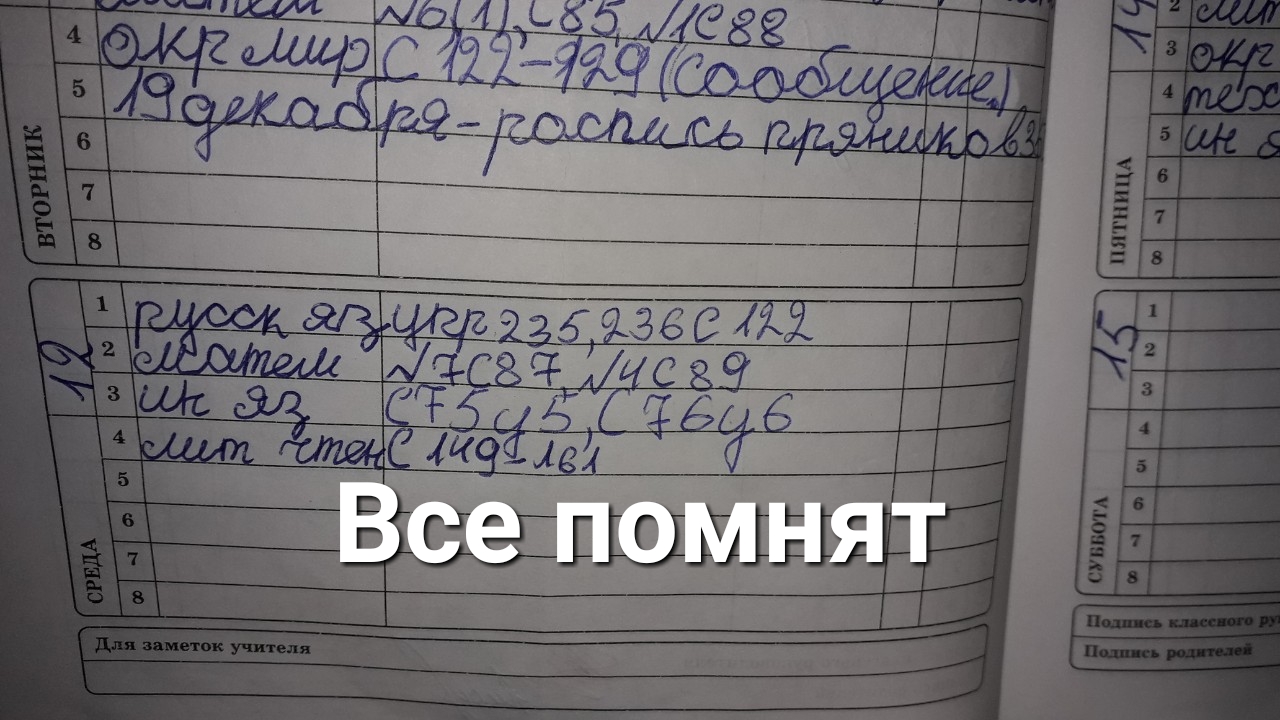 матем N6(1) С85, N1С88
4 окр мир С 122-129 (сообщение)
5 19 декабря - роспись пряников
6
7
8
ВТОРНИК
12
1 русск яз упр 235, 236 С 122
2 матем N7С87, N4С89
3 ин яз С75у5, С76у6
4 лит чтен С 149-161
5
6
7
8
СРЕДА
Все помнят
Для заметок учителя
14
2 лит
3 окр
4 тех
5 ин я
6
7
8
ПЯТНИЦА
15
1
2
3
4
5
6
7
8
СУББОТА
Подпись классного ру
Подпись родителей